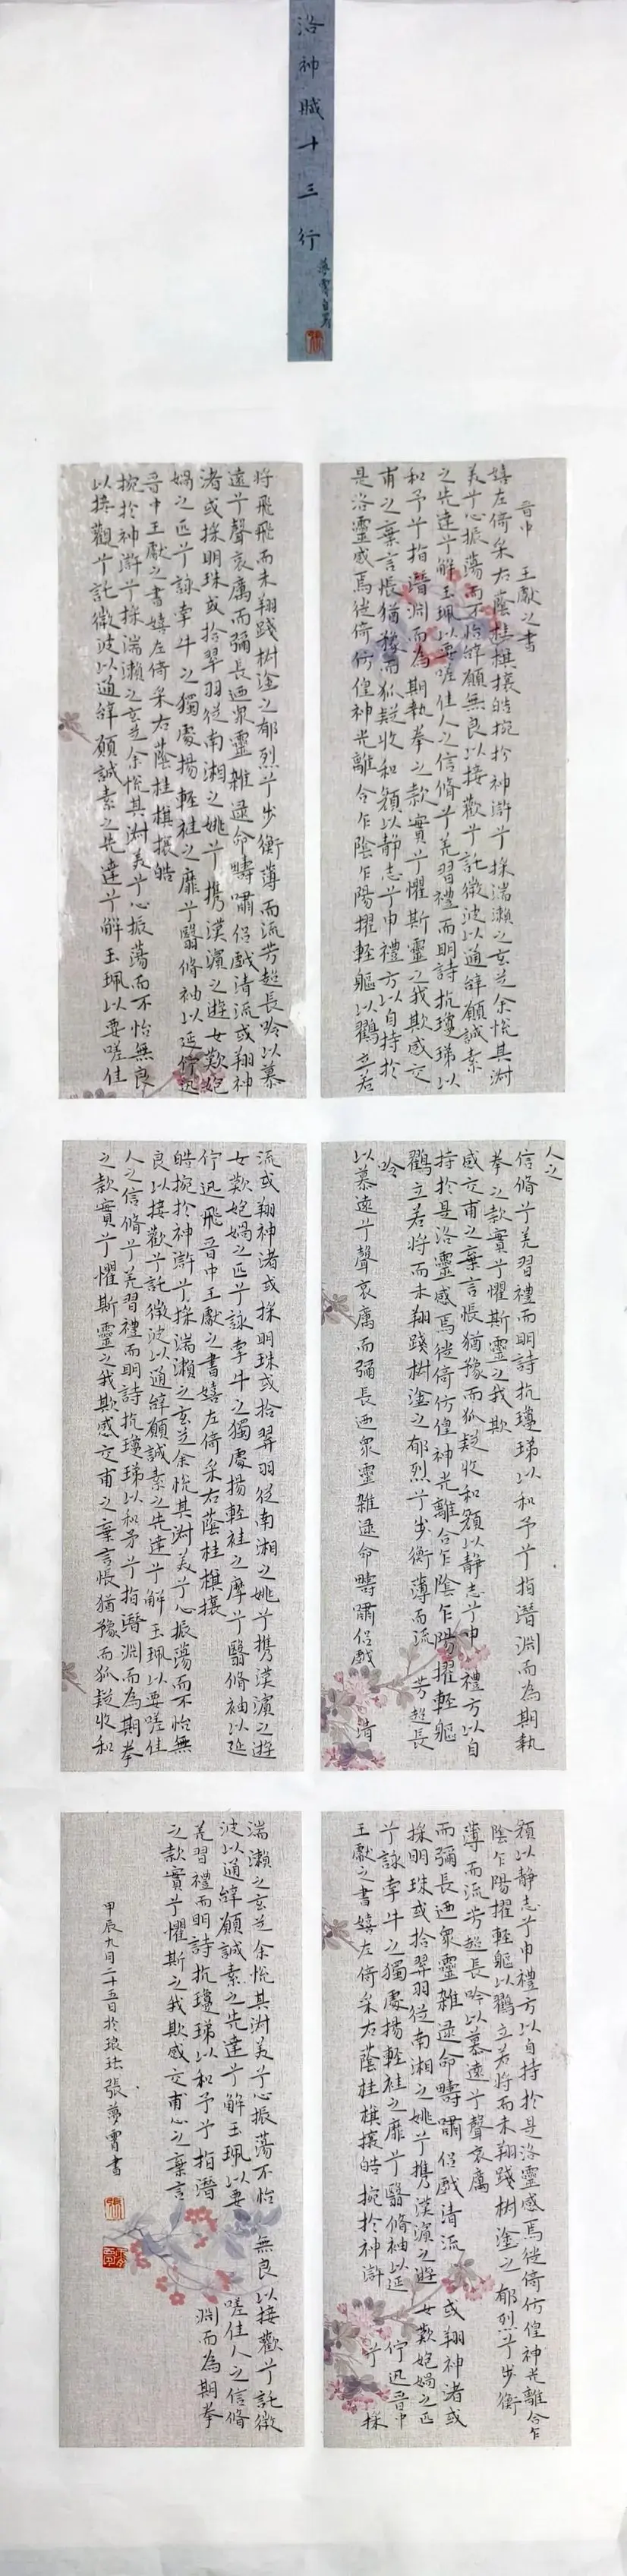 洛神賦十三行
夢霄自署
晉中 王獻之書
嬉左倚采右蔭桂棋攘皓捥於神滸兮採湍瀨之玄芝余悅其淑
美兮心振蕩而不怡辭願無良以接歡兮託微波以通辭願誠素
之先達兮解玉珮以要嗟佳人之信脩兮羌習禮而明詩抗瓊珶以
和予兮指潛淵而為期執拳之款實兮懼斯靈之我欺感交
甫之棄言悵猶豫而狐疑收和顏以靜志兮申禮方以自持於
是洛靈感焉徙倚仿偟神光離合乍陰乍陽擢輕軀以鶴立若
將飛飛而未翔踐椒塗之郁烈兮步衡薄而流芳超長吟以慕
遠兮聲哀厲而彌長迺衆靈雜遝命疇嘯侶戲清流或翔神
渚或採明珠或拾翠羽從南湘之姚兮攜漢濱之遊女歎匏
媧之匹兮詠牽牛之獨處揚輕袿之靡兮翳脩袖以延佇迅
晉中王獻之書嬉左倚采右蔭桂棋振皓
捥於神滸兮採湍瀨之玄芝余悅其淑美兮心振蕩而不怡無良
以接觀兮託微波以通辭願誠素之先達兮解玉珮以要嗟佳
人之
信脩兮羌習禮而明詩抗瓊珶以和予兮指潛淵而為期執
拳之款實兮懼斯靈之我欺
感交甫之棄言悵猶豫而狐疑收和顏以靜志兮申禮方以自
持於是洛靈感焉徙倚仿偟神光離合乍陰乍陽擢輕軀
鶴立若將而未翔踐椒塗之郁烈兮步衡薄而流 芳超長
吟
以慕遠兮聲哀厲而彌長迺衆靈雜遝命疇嘯侶戲 清
流或翔神渚或採明珠或拾翠羽從南湘之姚兮攜漢濱之遊
女歎匏媧之匹兮詠牽牛之獨處揚輕袿之摩兮翳脩袖以延
佇迅飛晉中王獻之書嬉左倚采右蔭桂棋攘
皓捥於神滸兮採湍瀨之玄芝余悅其淑美兮心振蕩而不怡無
良以接歡兮託微波以通辭願誠素之先達兮解玉珮以要嗟佳
人之信脩兮羌習禮而明詩抗瓊珶以和予兮指潛淵而為期拳
之款實兮懼斯靈之我欺感交甫之棄言悵猶豫而狐疑收和
顏以靜志兮申禮方以自持於是洛靈感焉徙倚仿偟神光離合乍
陰乍陽擢輕軀以鶴立若將而未翔踐椒塗之郁烈兮步衡
薄而流芳超長吟以慕遠兮聲哀厲
而彌長迺衆靈雜遝命疇嘯侶戲清流 或翔神渚或
採明珠或拾翠羽從南湘之姚兮攜漢濱之遊 女歎匏媧之匹
兮詠牽牛之獨處揚輕袿之靡兮翳脩袖以延 佇迅晉中
王獻之書嬉左倚采右蔭桂棋攘皓 捥於神滸 兮 採
湍瀨之玄芝余悅其淑美兮心振蕩不怡 無良以接歡兮託微
波以通辭願誠素之先達兮解玉珮以要 嗟佳人之信脩
羌習禮而明詩抗瓊珶以和予兮指潛 淵而為期拳
之款實兮懼斯之我欺感交甫心之棄言
甲辰九月二十五日於琅琺張夢霄書